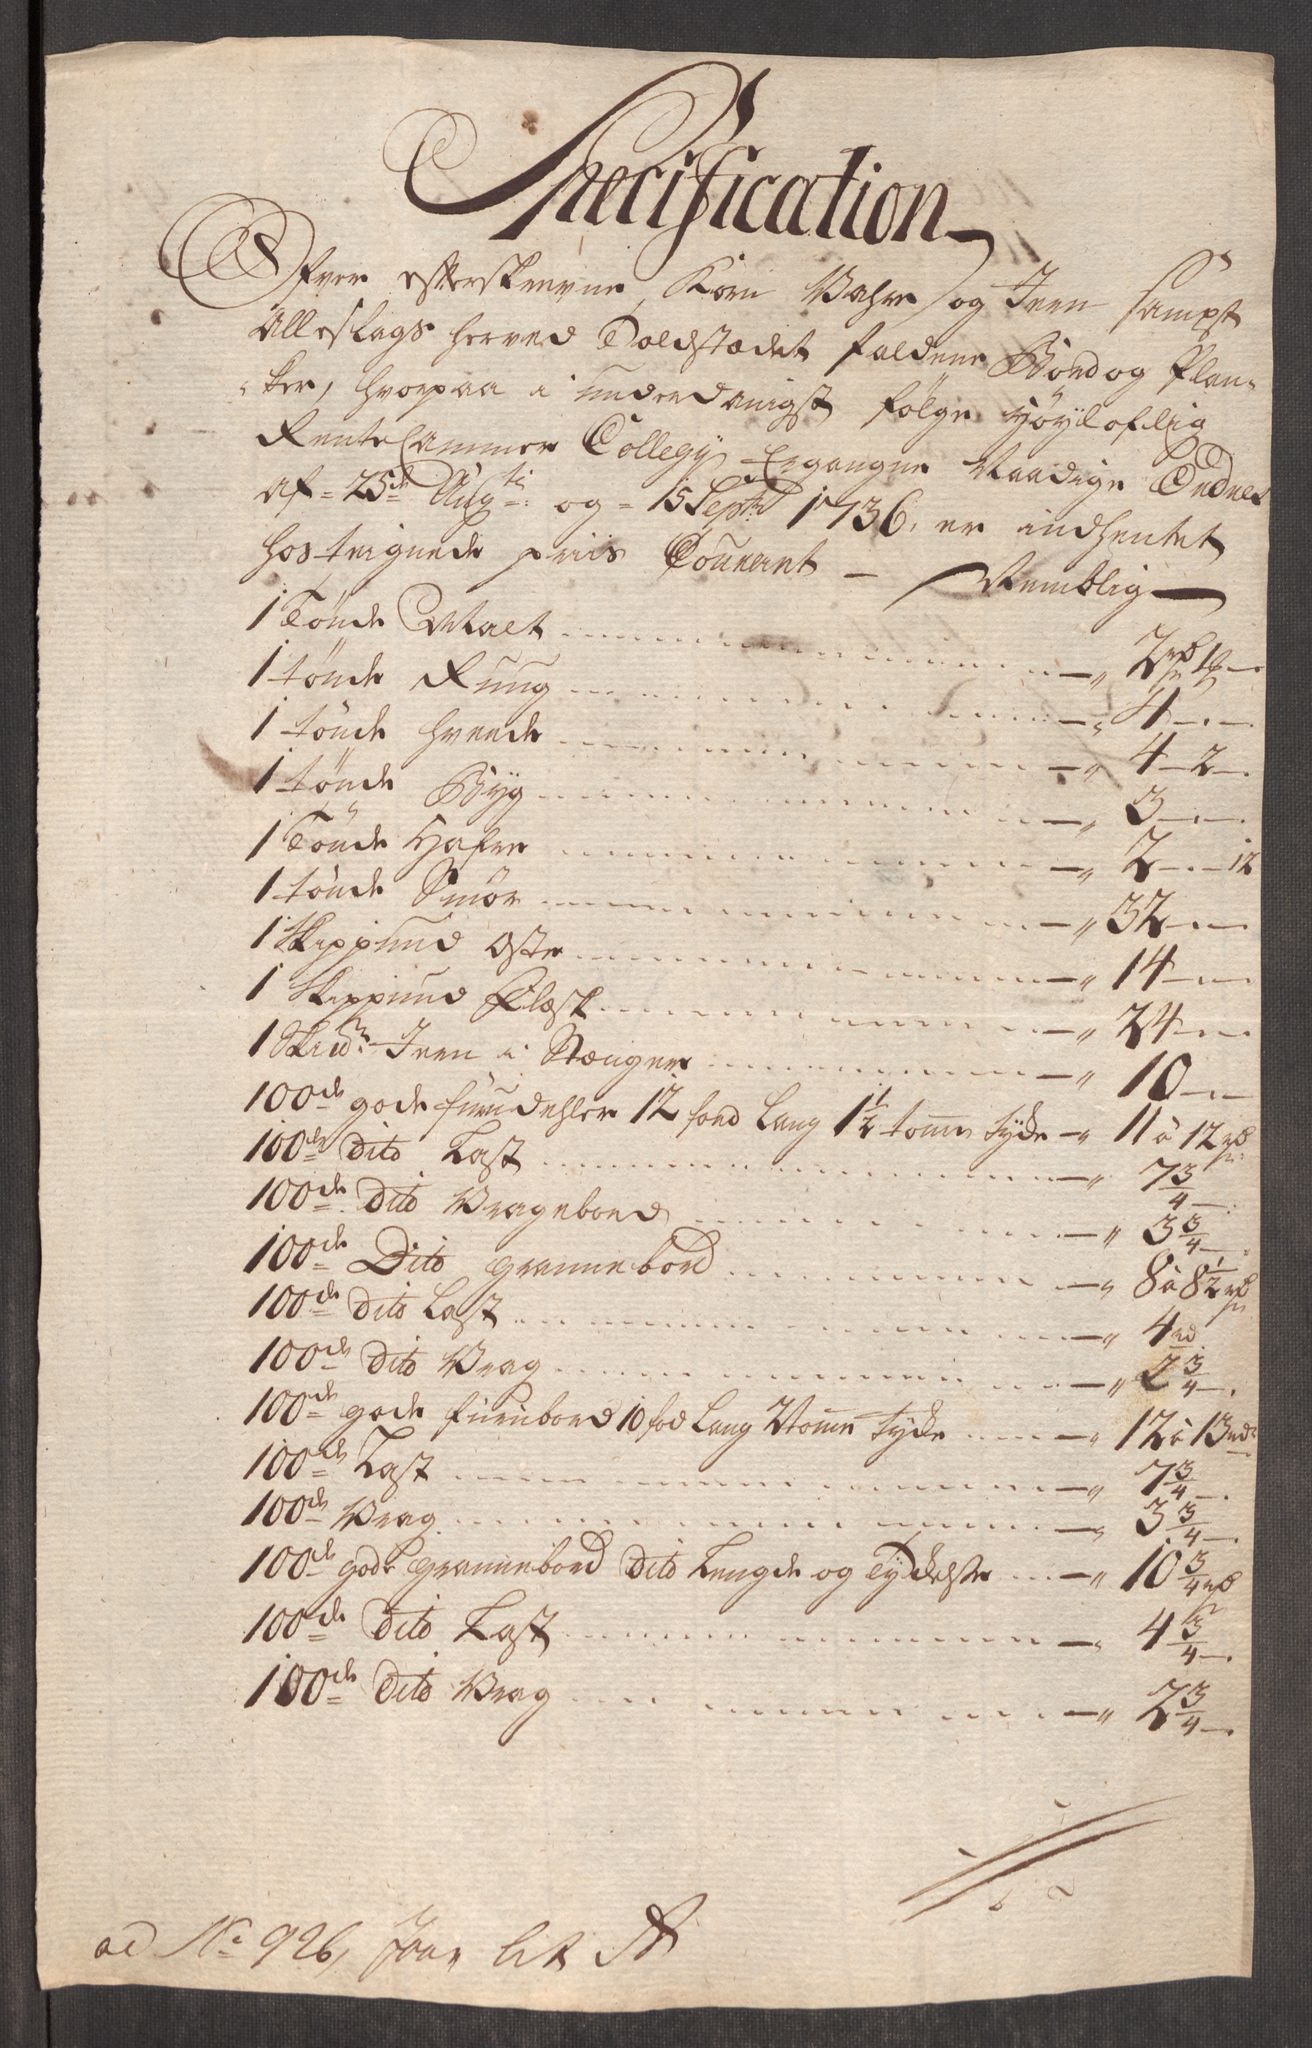 Specification
Ofver efterskrevne, Korn Wahre og Jern sampt
Alleslags herved Toldstædet faldene Bord og Plan-
-ker, hvorpaa i underdanigst følge Höyloflig
RenteCammer Collegy Ergangne Naadige Ordres
af 25de Augti: og 15 Septr 1736, er indhentet
hosteignede priis Courant — Nemblig —
1 Tönde Malt — 2 rd 1 —
1 tönde Ruug — 4 — . —
1 tönde hveede — 4 — 2 — .
1 tönde Byg — 3 — . — .
1 Tönde Hafre — 2 — . — 12
1 tönde Smör — 32 — . —
1 Skippund Oste — 14 — . —
1 Skippund Flæsk — 24 — . — .
1 Skipd: Jern i Stænger — 10 — . —
100de gode furudehler 12 foed Lang 1½ tomme tyke — 11 a 12 rd
100de Dito Last — 7 3/4 — .
100de Dito Vragebord — 3 3/4 — .
100de Dito grannebord — 8 a 8½ rd
100de Dito Last — 4 rd
100de Dito Vrag — 2 3/4 — .
100de gode furubord 10 fod Lang 2 tome tyke — 12 a 13 rd
100de Last — 7 3/4 — .
100de Vrag — 3 3/4 — .
100de gode grannebord Dito Lengde og Tykelse — 10 3/4 rd
100de Dito Last — 4 3/4 — .
100de Dito Vrag — 2 3/4 — .
ad No 926, Lit A